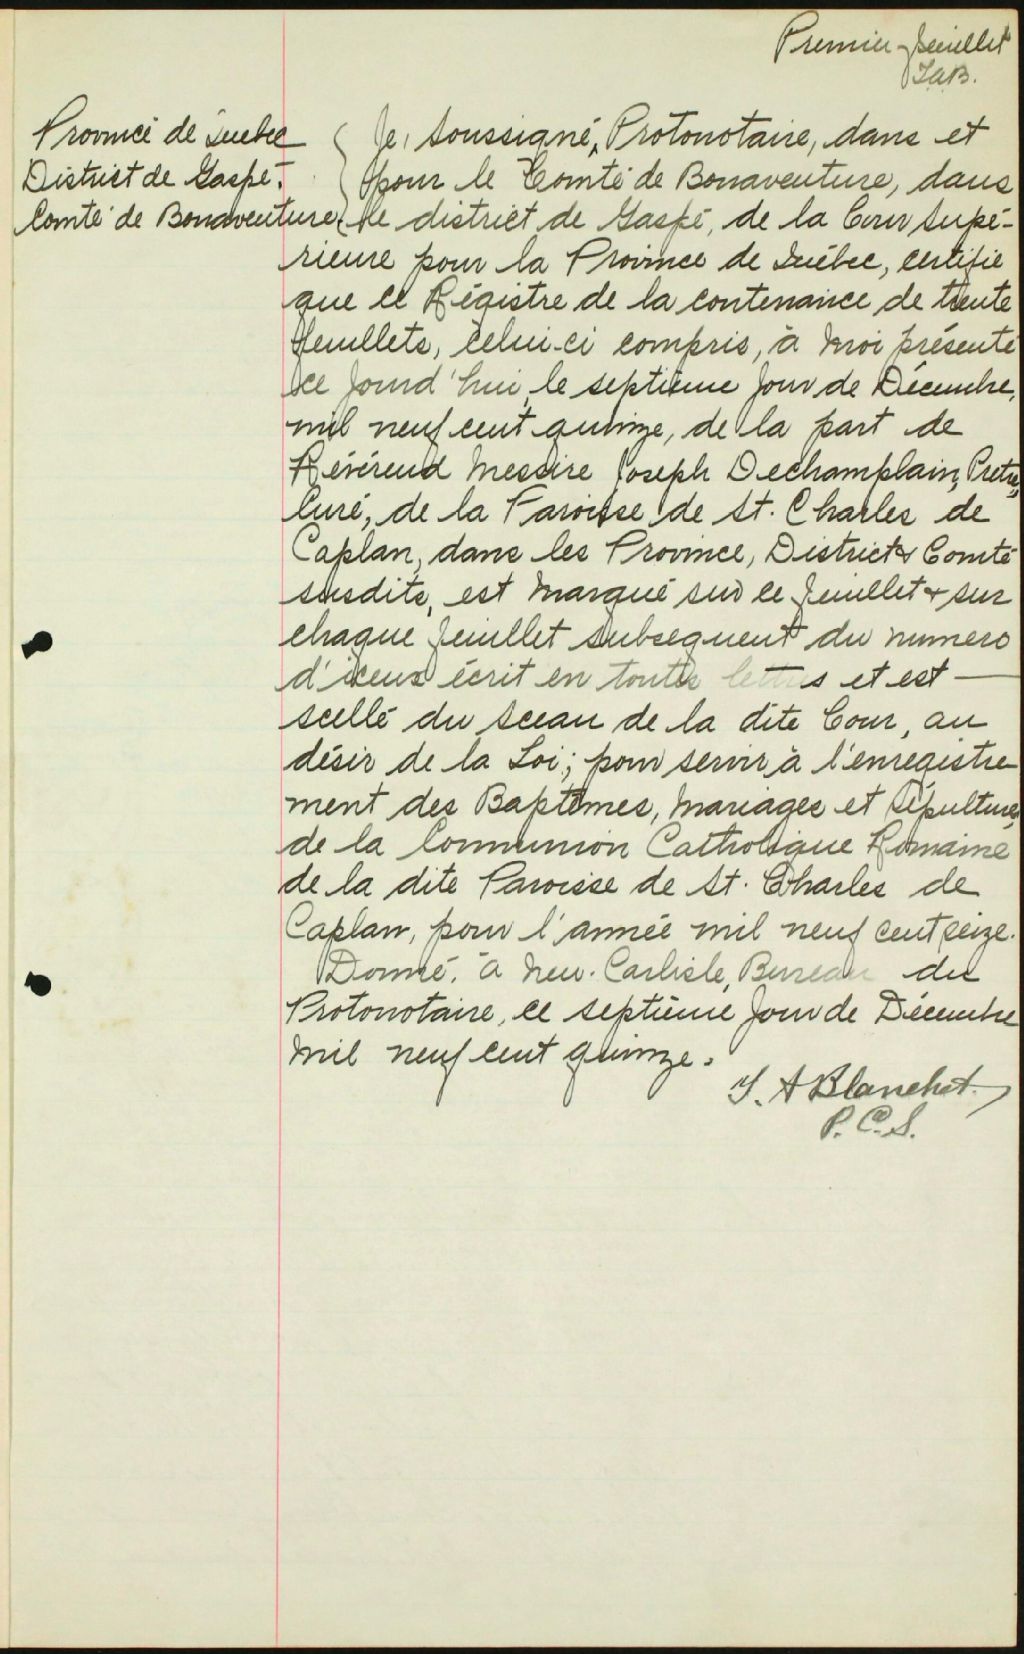 Premier feuillet
J.A.B.
Province de Québec
District de Gaspé.
Comté de Bonaventure
Je, soussigné, Protonotaire, dans et
pour le Comté de Bonaventure, dans
le district de Gaspé, de la Cour Supé-
rieure pour la Province de Québec, certifie
que ce Régistre de la contenance de trente
feuillets, celui-ci compris, à moi présenté
ce jourd'hui, le septième jour de Décembre,
mil neuf cent quinze, de la part de
Révérend Messire Joseph Dechamplain, Prêtre,
Curé, de la Paroisse de St. Charles de
Caplan, dans les Province, District & Comté
susdits, est marqué sur ce feuillet & sur
chaque feuillet subsequent du numero
d'iceux écrit en toutes lettres et est —
scellé du sceau de la dite Cour, au
désir de la Loi; pour servir à l'enregistre
ment des Baptêmes, Mariages et Sépultures,
de la Communion Catholique Romaine
de la dite Paroisse de St. Charles de
Caplan, pour l'année mil neuf cent seize.
Donné, à New-Carlisle, Bureau du
Protonotaire, ce septième jour de Décembre
mil neuf cent quinze.
J. A Blanchet
P. C. S.